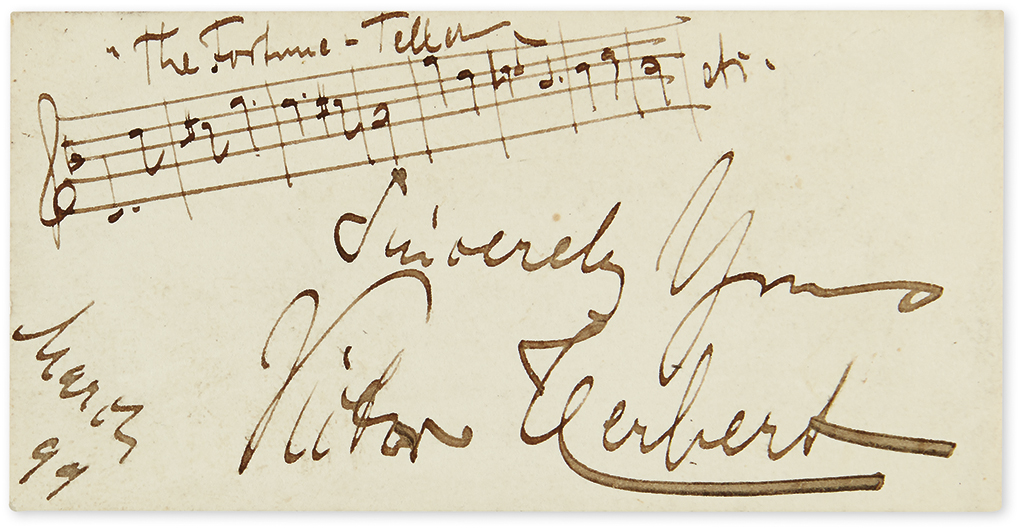 "The Fortune-Teller
etc.
Sincerely Yours
Victor Herbert
March
99